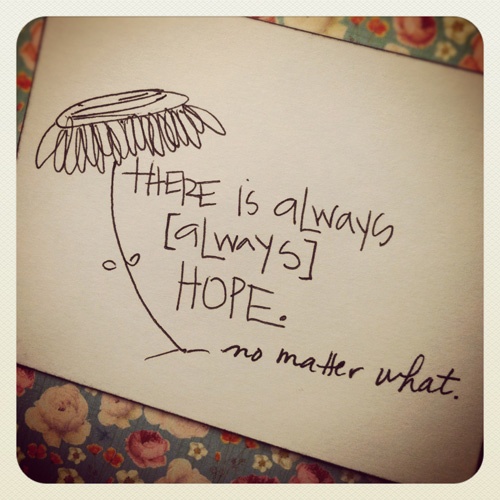 THERE is always
[always]
HOPE.
no matter what.